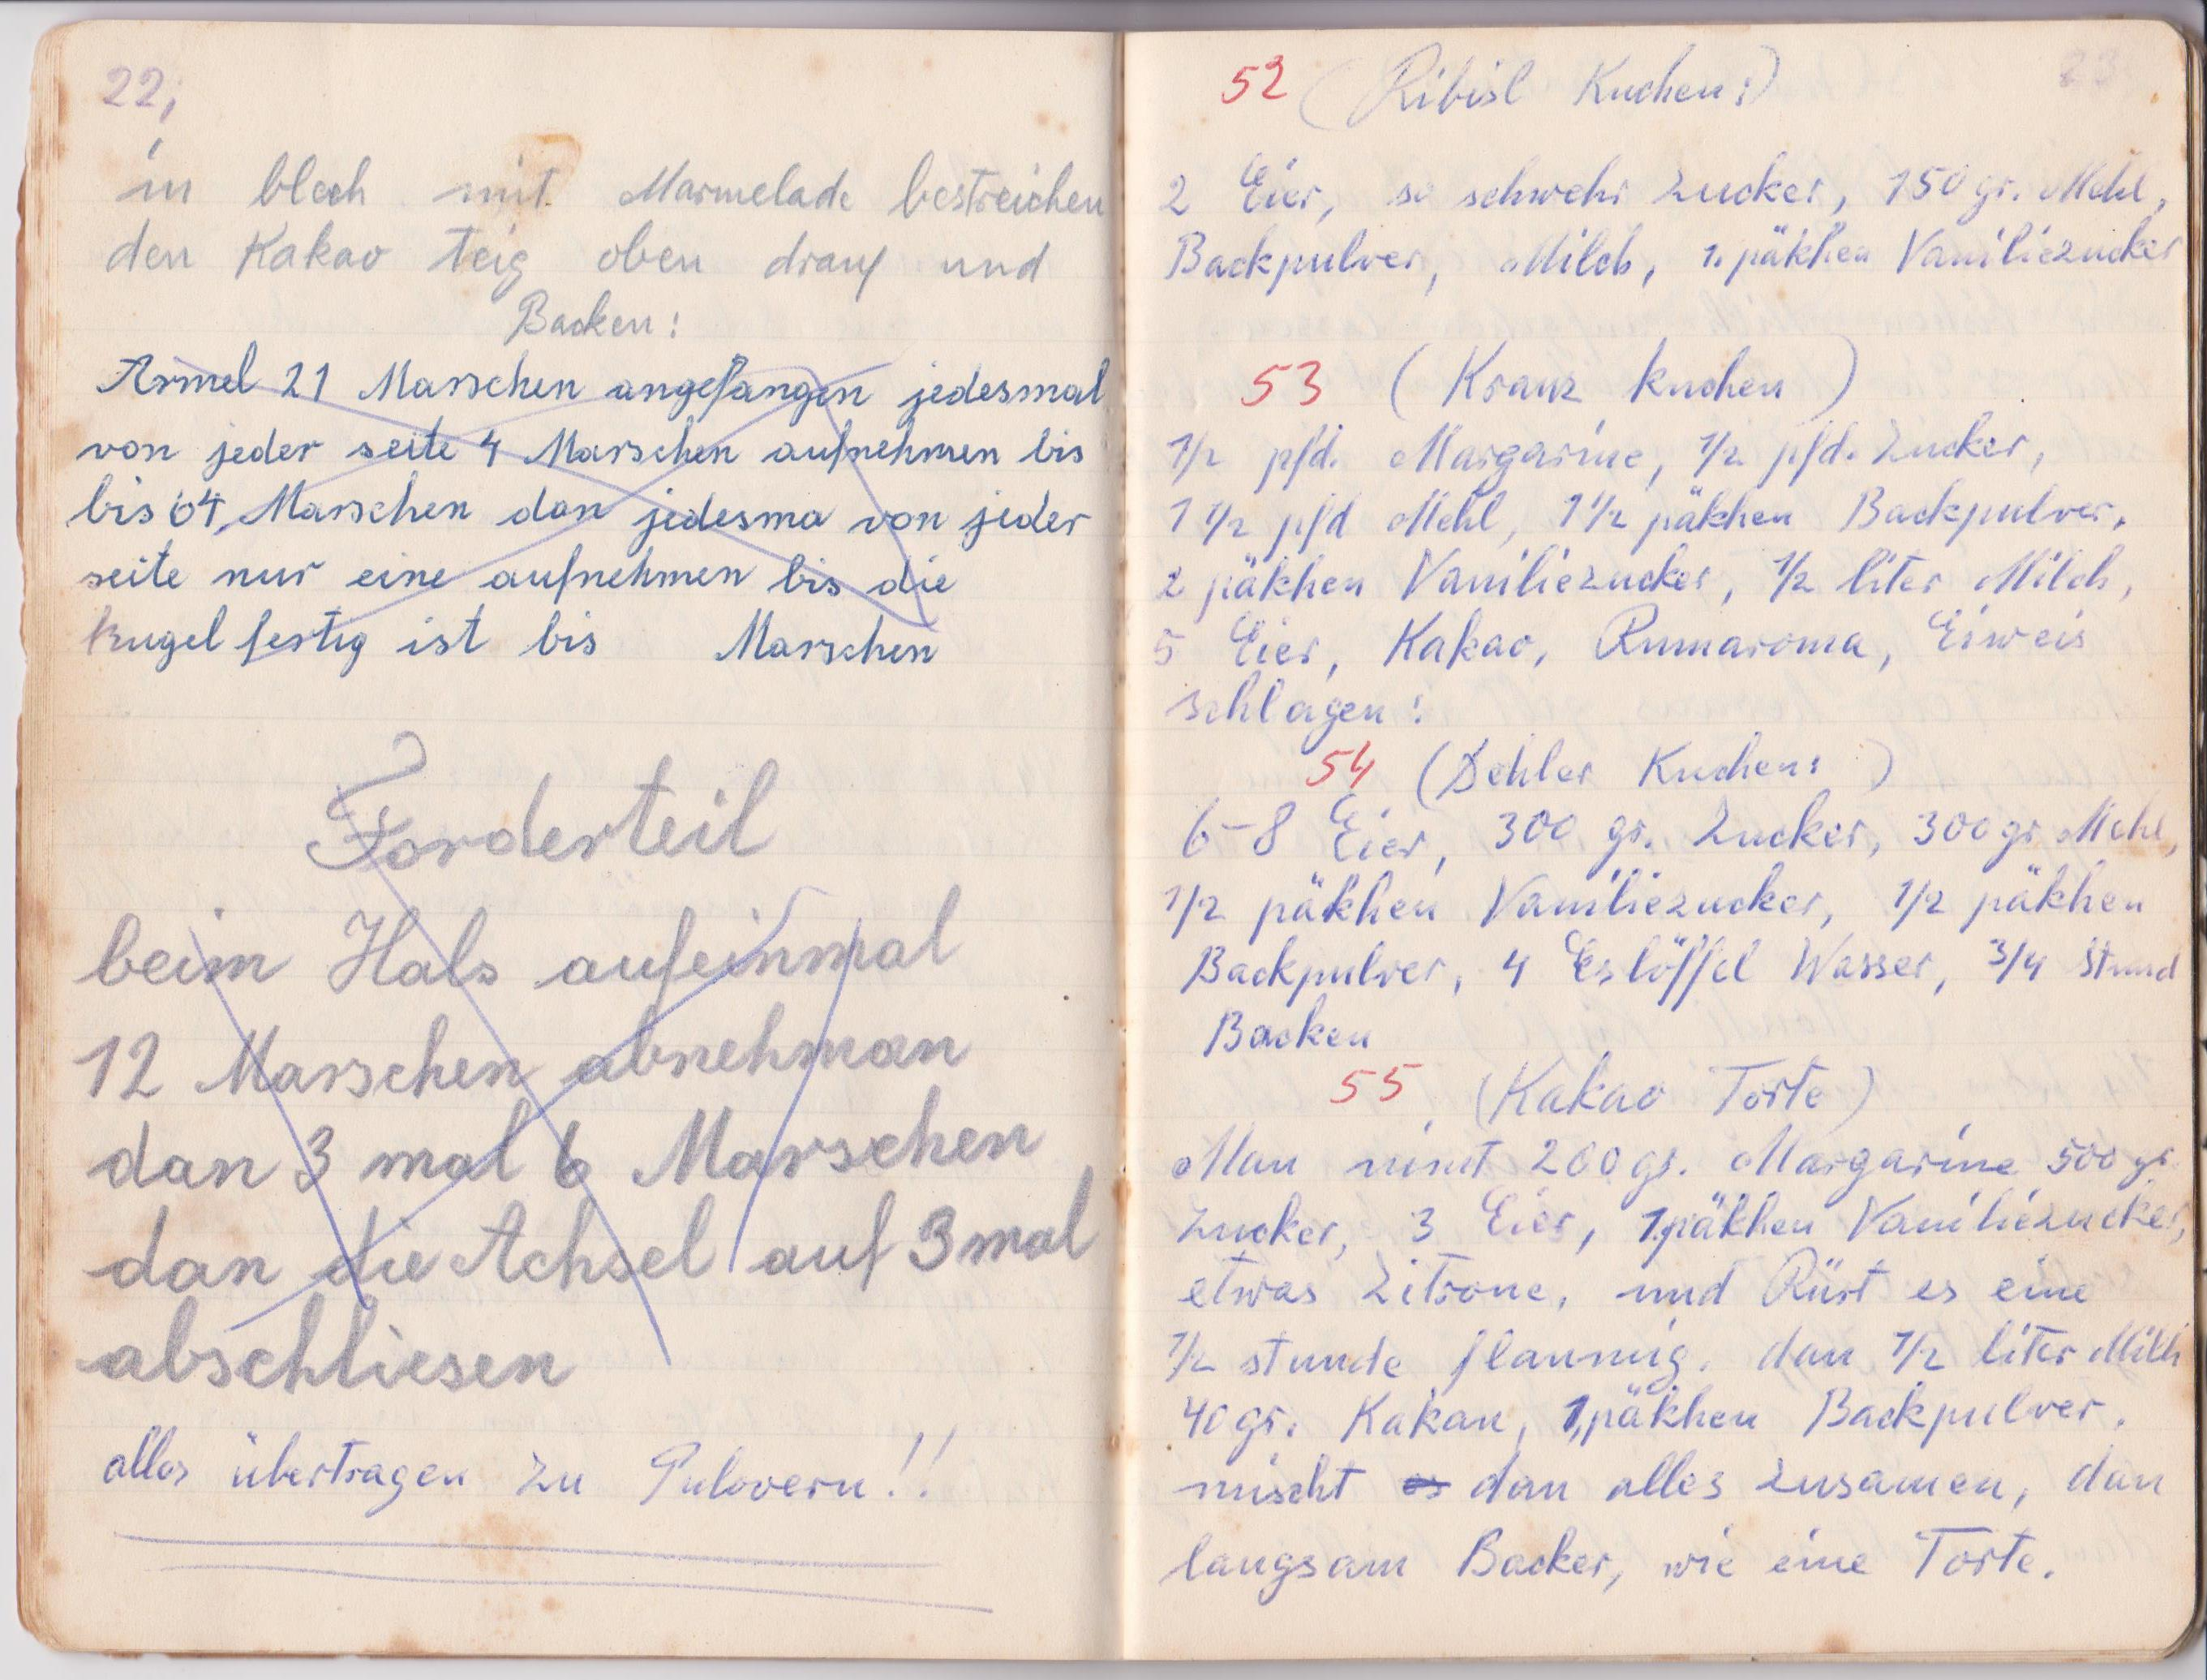 22,
in blech mit Marmelade bestreichen
den Kakao teig oben drauf und
Backen:
Armel 21 Marschen angefangen jedesmal
von jeder seite 4 Marschen aufnehmen bis
bis 64, Marschen dan jedesma von jeder
seite nur eine aufnehmen bis die
kugel fertig ist bis Marschen
Forderteil
beim Hals aufeinmal
12 Marschen abnehman
dan 3 mal 6 Marschen
dan die Achsel auf 3 mal
abschliesen
alles übertragen zu Pulovern!!
23
52 (Ribisl Kuchen:)
2 Eier, so schwehr Zucker, 150 gr. Mehl,
Backpulver, Milch, 1. päkhen Vaniliezucker
53 (Kranz kuchen)
1/2 pfd. Margarine, 1/2 pfd. Zucker,
1 1/2 pfd Mehl, 1 1/2 päkhen Backpulver,
2 päkhen Vaniliezucker, 1/2 liter Milch,
5 Eier, Kakao, Rumaroma, Eiweis
schlagen:
54 (Dehler Kuchen:)
6-8 Eier, 300 gr. Zucker, 300 gr Mehl,
1/2 päkhen Vaniliezucker, 1/2 päkhen
Backpulver, 4 Eslöffel Wasser, 3/4 Stund
Backen
55 (Kakao Torte)
Man nimt 200 gr. Margarine 500 gr.
Zucker, 3 Eier, 1.päkhen Vaniliezucker,
etwas Zitrone, und Rürt es eine
1/2 stunde flaumig. dan 1/2 liter Milh
40 gr. Kakau, 1,päkhen Backpulver.
mischt es dan alles zusamen, dan
langsam Backer, wie eine Torte.